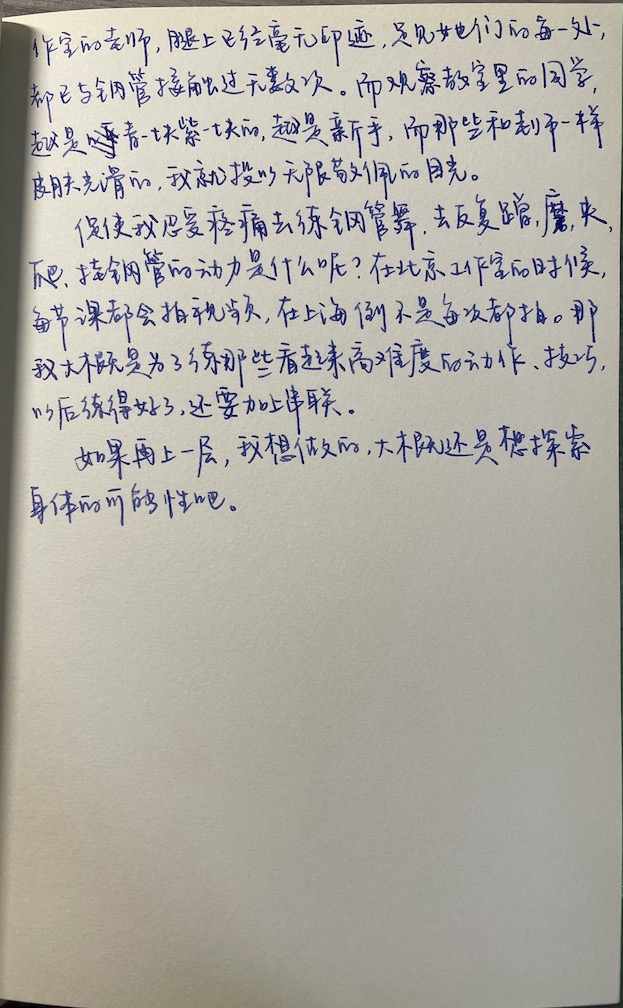 作室的老师，腿上已经毫无印迹，足见她们的每一处，
都已与钢管接触过无数次。而观察教室里的同学，
越是青一块紫一块的，越是新手，而那些和老师一样
皮肤光滑的，我就投以无限敬佩的目光。
促使我忍受疼痛去练钢管舞，去反复蹭，磨，夹，
爬，挂钢管的动力是什么呢？在北京工作室的时候，
每节课都会拍视频，在上海倒不是每次都拍。那
我大概是为了练那些看起来高难度的动作、技巧，
以后练得好了，还要加上串联。
如果再上一层，我想做的，大概还是想探索
身体的可能性吧。